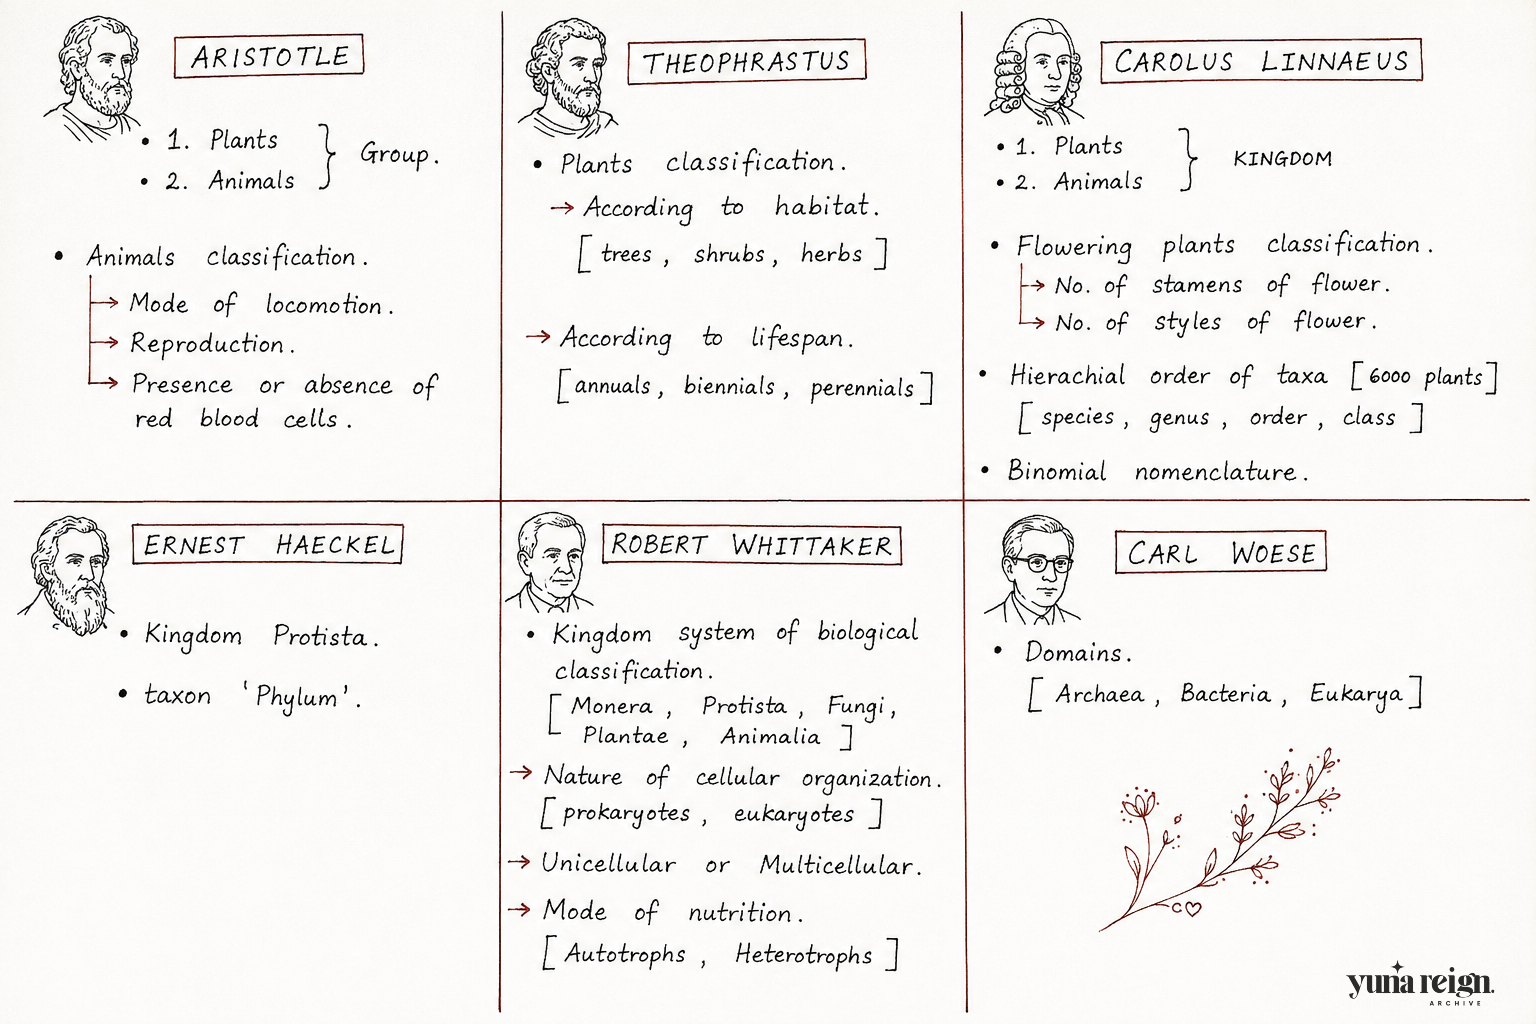 ARISTOTLE
• 1. Plants
• 2. Animals
Group.
• Animals classification.
→ Mode of locomotion.
→ Reproduction.
→ Presence or absence of
red blood cells.
THEOPHRASTUS
• Plants classification.
→ According to habitat.
[trees, shrubs, herbs]
→ According to lifespan.
[annuals, biennials, perennials]
CAROLUS LINNAEUS
• 1. Plants
• 2. Animals
KINGDOM
• Flowering plants classification.
→ No. of stamens of flower.
→ No. of styles of flower.
• Hierachial order of taxa [6000 plants]
[species, genus, order, class]
• Binomial nomenclature.
ERNEST HAECKEL
• Kingdom Protista.
• taxon 'Phylum'.
ROBERT WHITTAKER
• Kingdom system of biological
classification.
[Monera, Protista, Fungi,
Plantae, Animalia]
→ Nature of cellular organization.
[prokaryotes, eukaryotes]
→ Unicellular or Multicellular.
→ Mode of nutrition.
[Autotrophs, Heterotrophs]
CARL WOESE
• Domains.
[Archaea, Bacteria, Eukarya]
yuna reign.
ARCHIVE